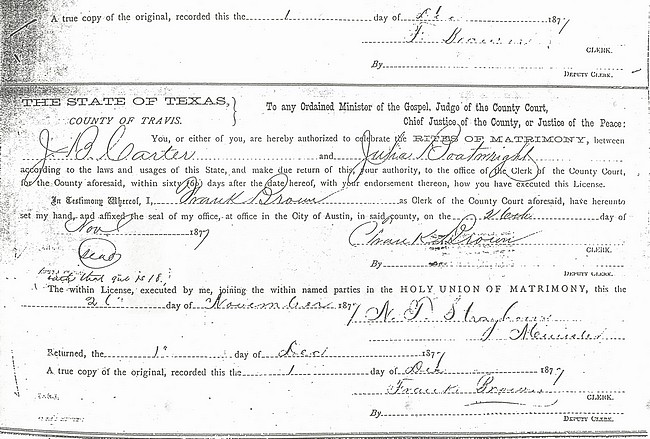 A true copy of the original, recorded this the 1 day of 1877
F. Brown
CLERK.
By
DEPUTY CLERK.
THE STATE OF TEXAS,
COUNTY OF TRAVIS.
To any Ordained Minister of the Gospel, Judge of the County Court,
Chief Justice of the County, or Justice of the Peace:
You, or either of you, are hereby authorized to celebrate the RITES OF MATRIMONY, between
J. B. Carter and Julia Boatwright
according to the laws and usages of this State, and make due return of this, your authority, to the office of the Clerk of the County Court,
for the County aforesaid, within sixty (60) days after the date hereof, with your endorsement thereon, how you have executed this License.
In Testimony Whereof, I, Frank Brown as Clerk of the County Aforesaid, have hereunto
set my hand, and affixed the seal of my office, at office in the City of Austin, in said county, on the day of
Nov 1877
Frank Brown
CLERK.
seal
By
DEPUTY CLERK.
that girl is 18,
The within License, executed by me, joining the within named parties in the HOLY UNION OF MATRIMONY, this the
26 day of November 1877
N. T.
Minister
Returned, the 1" day of Dec 1877
A true copy of the original, recorded this the 1 day of Dec 1877
Frank Brown
CLERK.
By
DEPUTY CLERK.